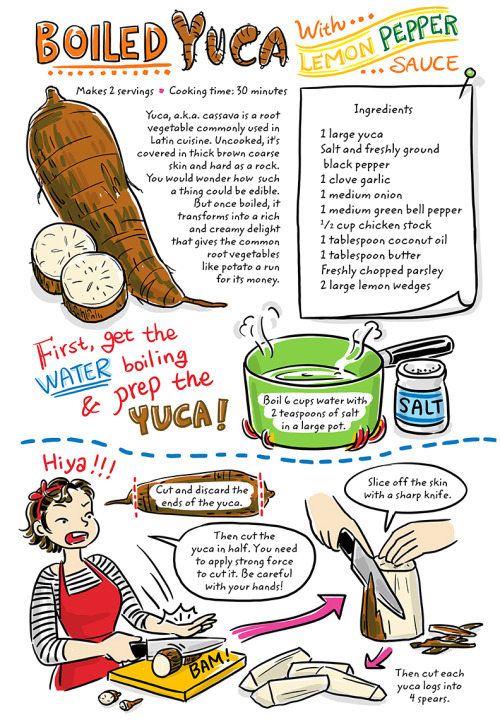 BOILED YUCA With...
LEMON PEPPER
... SAUCE
Makes 2 servings • Cooking time: 30 minutes
Yuca, a.k.a. cassava is a root
vegetable commonly used in
Latin cuisine. Uncooked, it's
covered in thick brown coarse
skin and hard as a rock.
You would wonder how such
a thing could be edible.
But once boiled, it
transforms into a rich
and creamy delight
that gives the common
root vegetables
like potato a run
for its money.
Ingredients
1 large yuca
Salt and freshly ground
black pepper
1 clove garlic
1 medium onion
1 medium green bell pepper
1/2 cup chicken stock
1 tablespoon coconut oil
1 tablespoon butter
Freshly chopped parsley
2 large lemon wedges
First, get the
WATER boiling
& prep the
YUCA!
Boil 6 cups water with
2 teaspoons of salt
in a large pot.
SALT
Hiya!!!
Cut and discard the
ends of the yuca.
Then cut the
yuca in half. You need
to apply strong force
to cut it. Be careful
with your hands!
BAM!
Slice off the skin
with a sharp knife.
Then cut each
yuca logs into
4 spears.